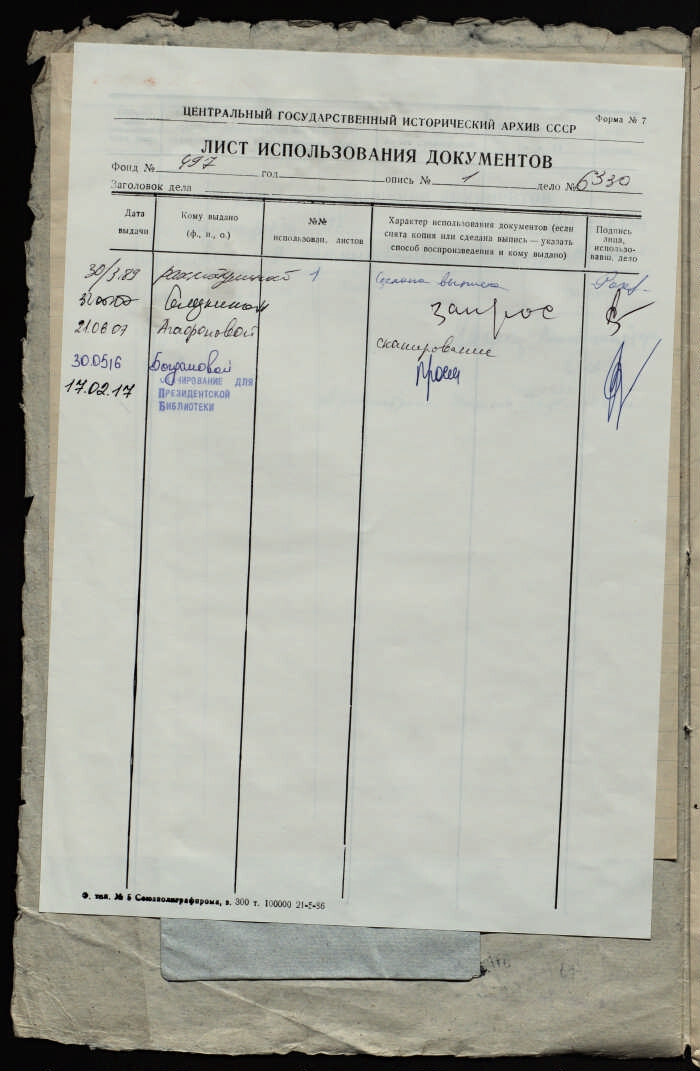 Форма № 7
ЦЕНТРАЛЬНЫЙ ГОСУДАРСТВЕННЫЙ ИСТОРИЧЕСКИЙ АРХИВ СССР
ЛИСТ ИСПОЛЬЗОВАНИЯ ДОКУМЕНТОВ
Фонд № 497 год опись № 1 дело № 6330
Заголовок дела
Дата выдачи
Кому выдано (ф., и., о.)
№№ использован. листов
Характер использования документов (если снята копия или сделана выпись — указать способ воспроизведения и кому выдано)
Подпись лица, использо- вавш. дело
30/3.89 1 Сделана выписка
запрос
21.06.07 Агафоновой
сканирование
30.05.16 Богдановой просм
17.02.17 СКАНИРОВАНИЕ ДЛЯ
ПРЕЗИДЕНТСКОЙ
БИБЛИОТЕКИ
Ф. тип. № 5 Союзполиграфпрома, з. 300 т. 100000 21-5-86